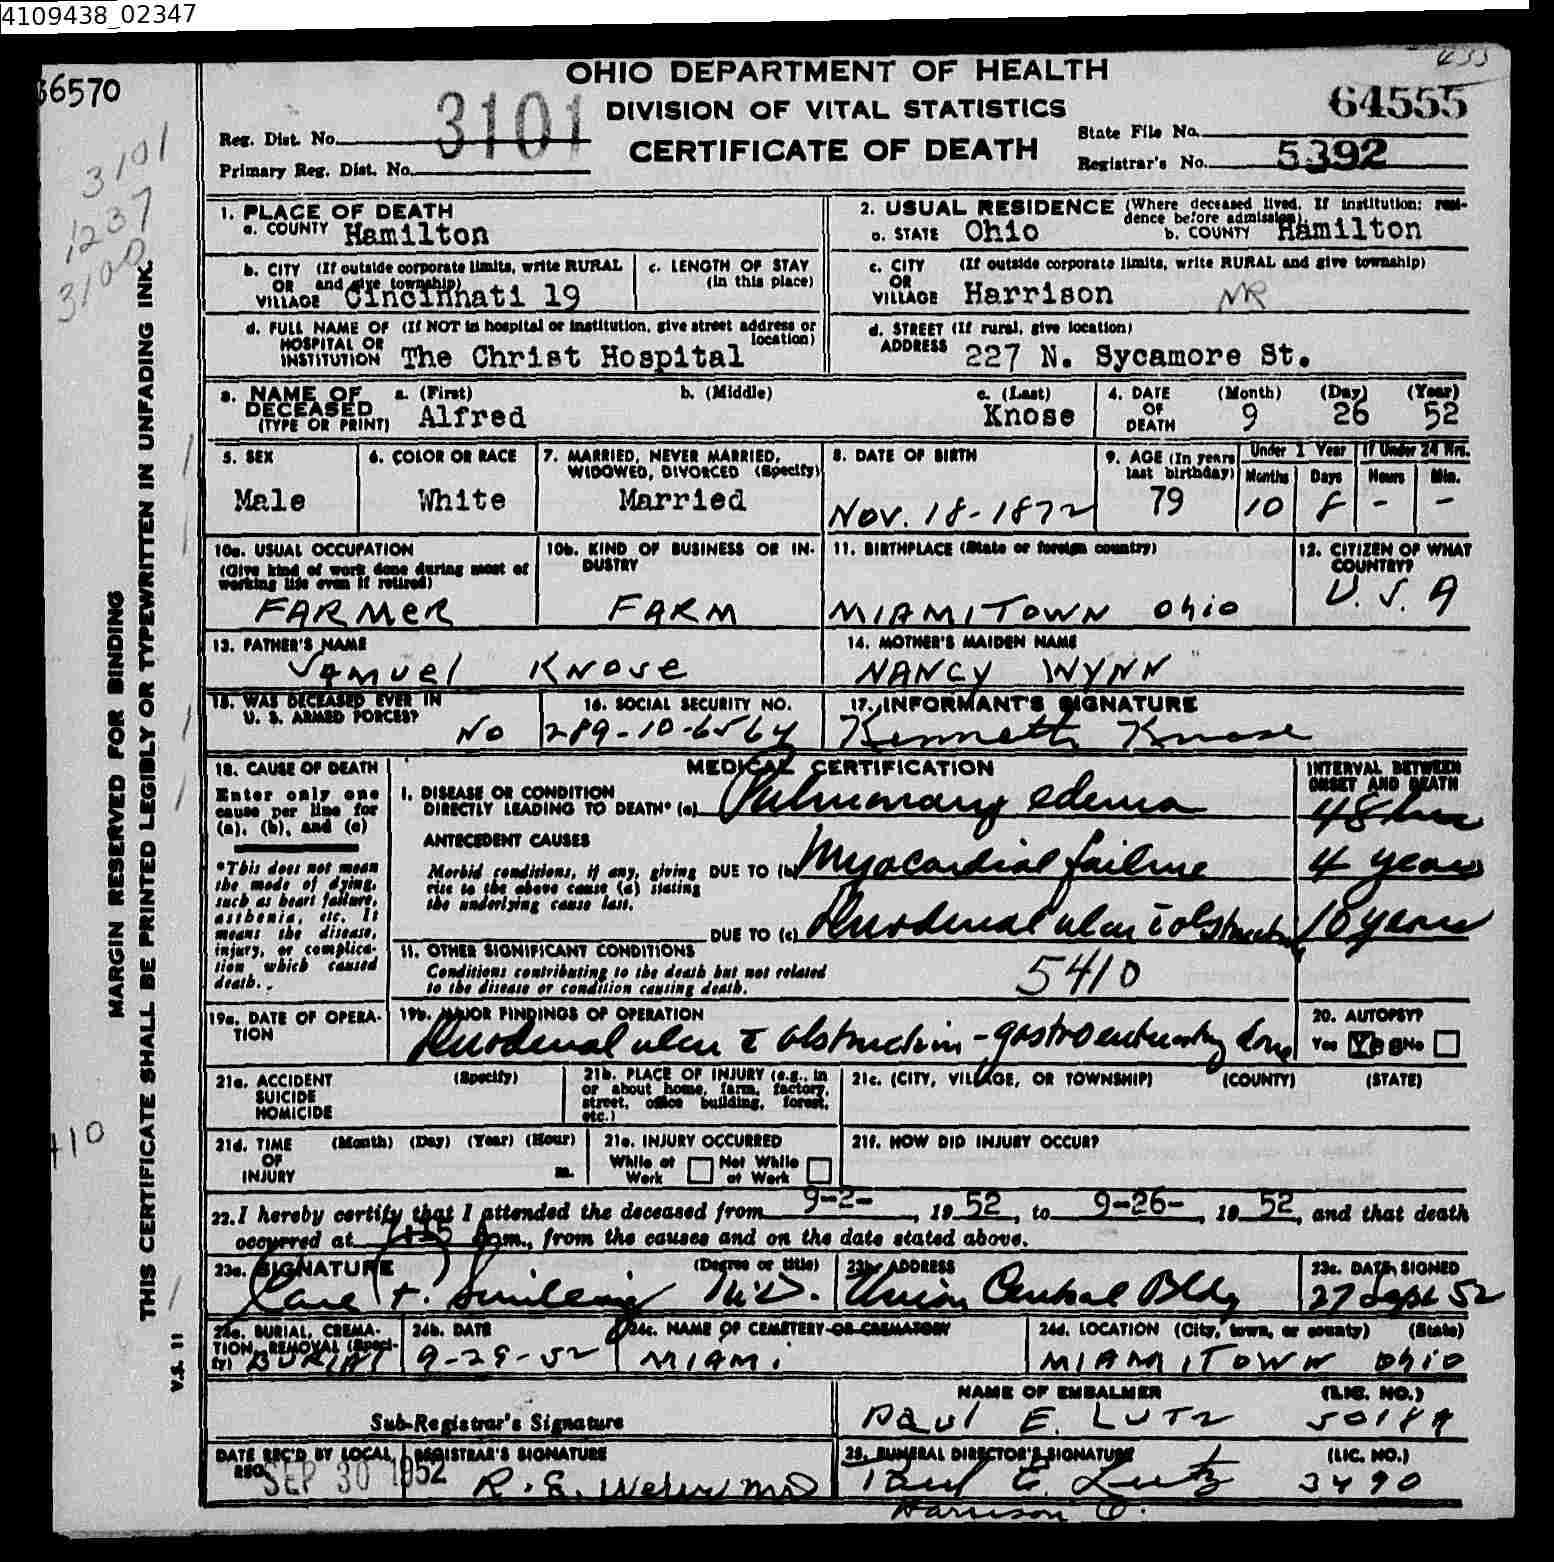 4109438_02347
36570
OHIO DEPARTMENT OF HEALTH
DIVISION OF VITAL STATISTICS
CERTIFICATE OF DEATH
Reg. Dist. No. 3101
Primary Reg. Dist. No.
64555
State File No.
Registrar's No. 5392
3101
1237
3100
1. PLACE OF DEATH
a. COUNTY Hamilton
2. USUAL RESIDENCE (Where deceased lived. If institution: resi-
dence before admission).
a. STATE Ohio b. COUNTY Hamilton
b. CITY (If outside corporate limits, write RURAL
OR and give township)
VILLAGE Cincinnati 19
c. LENGTH OF STAY
(in this place)
c. CITY (If outside corporate limits, write RURAL and give township)
OR
VILLAGE Harrison NR
d. FULL NAME OF (If NOT in hospital or institution, give street address or
HOSPITAL OR location)
INSTITUTION The Christ Hospital
d. STREET (If rural, give location)
ADDRESS 227 N. Sycamore St.
3. NAME OF a. (First) b. (Middle) c. (Last)
DECEASED
(TYPE OR PRINT) Alfred Knose
4. DATE (Month) (Day) (Year)
OF
DEATH 9 26 52
5. SEX
Male
6. COLOR OR RACE
White
7. MARRIED, NEVER MARRIED,
WIDOWED, DIVORCED (Specify)
Married
8. DATE OF BIRTH
Nov. 18-1872
9. AGE (In years
last birthday)
79
Under 1 Year
Months Days
10 8
If Under 24 Hrs.
Hours Min.
- -
10a. USUAL OCCUPATION
(Give kind of work done during most of
working life even if retired)
FARMER
10b. KIND OF BUSINESS OR IN-
DUSTRY
FARM
11. BIRTHPLACE (State or foreign country)
MIAMITOWN Ohio
12. CITIZEN OF WHAT
COUNTRY?
U.S.A
13. FATHER'S NAME
Samuel Knose
14. MOTHER'S MAIDEN NAME
NANCY WYNN
15. WAS DECEASED EVER IN
U. S. ARMED FORCES?
No
16. SOCIAL SECURITY NO.
289-10-6564
17. INFORMANT'S SIGNATURE
Kenneth Knose
18. CAUSE OF DEATH
Enter only one
cause per line for
(a), (b), and (c)
*This does not mean
the mode of dying,
such as heart failure,
asthenia, etc. It
means the disease,
injury, or complica-
tion which caused
death.
MEDICAL CERTIFICATION
INTERVAL BETWEEN
ONSET AND DEATH
I. DISEASE OR CONDITION
DIRECTLY LEADING TO DEATH* (a) Pulmonary edema 48 hrs
ANTECEDENT CAUSES
Morbid conditions, if any, giving
rise to the above cause (a) stating
the underlying cause last.
DUE TO (b) Myocardial failure 4 years
DUE TO (c) Duodenal ulcer c̄ obstruction 10 years
II. OTHER SIGNIFICANT CONDITIONS
Conditions contributing to the death but not related
to the disease or condition causing death.
5410
19a. DATE OF OPERA-
TION
19b. MAJOR FINDINGS OF OPERATION
Duodenal ulcer c̄ obstruction - gastroenterostomy done
20. AUTOPSY?
Yes No
21a. ACCIDENT (Specify)
SUICIDE
HOMICIDE
21b. PLACE OF INJURY (e.g., in
or about home, farm, factory,
street, office building, forest,
etc.)
21c. (CITY, VILLAGE, OR TOWNSHIP) (COUNTY) (STATE)
21d. TIME (Month) (Day) (Year) (Hour)
OF
INJURY m.
21e. INJURY OCCURRED
While at Not While
Work at Work
21f. HOW DID INJURY OCCUR?
22. I hereby certify that I attended the deceased from 9-2-, 1952, to 9-26-, 1952, and that death
occurred at m., from the causes and on the date stated above.
23a. SIGNATURE (Degree or title)
M.D.
23b. ADDRESS
Union Central Bldg
23c. DATE SIGNED
27 Sept 52
24a. BURIAL, CREMA-
TION, REMOVAL (Speci-
fy) BURIAL
24b. DATE
9-29-52
24c. NAME OF CEMETERY OR CREMATORY
MIAMI
24d. LOCATION (City, town, or county) (State)
MIAMITOWN Ohio
Sub-Registrar's Signature
NAME OF EMBALMER (LIC. NO.)
Paul E. LUTZ
DATE REC'D BY LOCAL
REG. SEP 30 1952
REGISTRAR'S SIGNATURE
25. FUNERAL DIRECTOR'S SIGNATURE (LIC. NO.)
Paul E. Lutz 3490
Harrison O.
MARGIN RESERVED FOR BINDING
THIS CERTIFICATE SHALL BE PRINTED LEGIBLY OR TYPEWRITTEN IN UNFADING INK.
V.S. 11